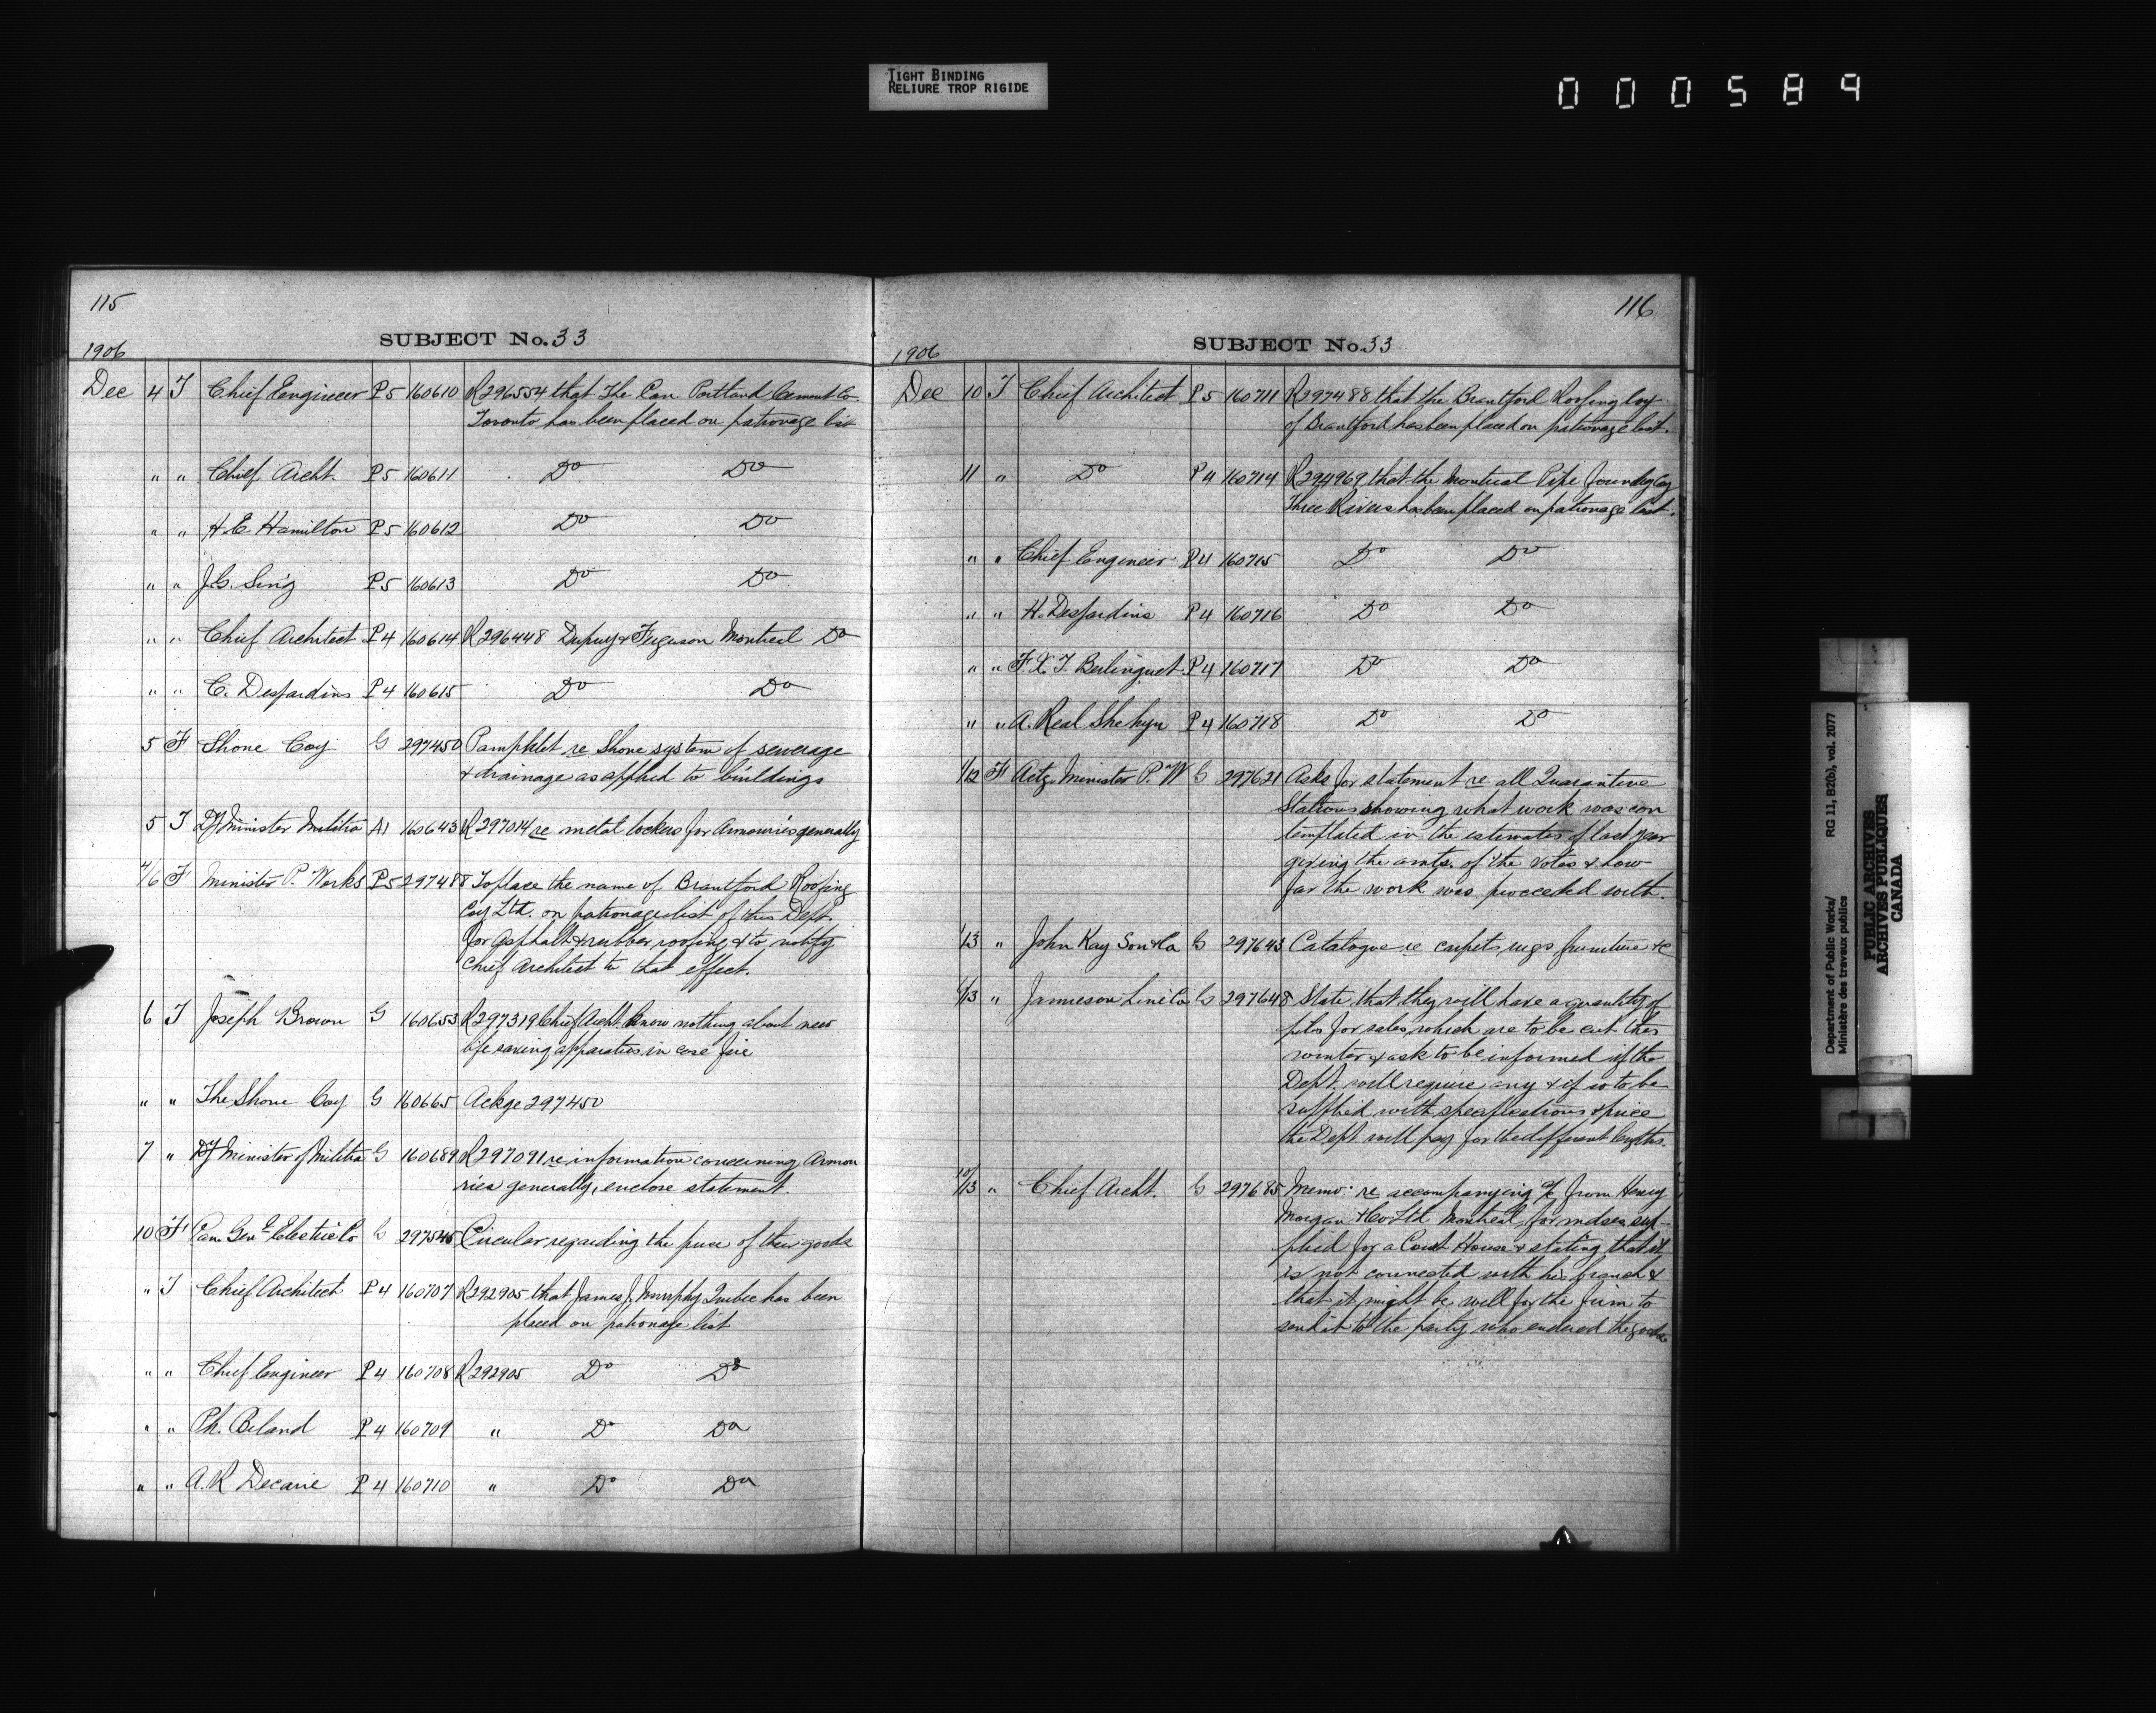 TIGHT BINDING
RELIURE TROP RIGIDE
000589
115
SUBJECT No. 33
1906
Dec 4 T Chief Engineer P5 160610 R296554 that The Can Portland Cement Co.
Toronto has been placed on patronage list
" " Chief Archt. P5 160611 Do Do
" " H.E Hamilton P5 160612 Do Do
" " J.G. Sing P5 160613 Do Do
" " Chief Architect P4 160614 R296448 Dupuy & Ferguson Montreal Do
" " C. Desjardins P4 160615 Do Do
5 F Shone Coy G 297450 Pamphlet re Shone system of sewerage
& drainage as applied to buildings
5 T Dy Minister Militia A1 160643 R297014 re metal lockers for Armouries generally
4/6 F Minister P. Works P5 297488 To place the name of Brantford Roofing
Coy Ltd. on patronage list of this Dept.
for asphalt & rubber roofing & to notify
Chief Architect to that effect.
6 T Joseph Brown G 160653 R297319 Chief Archt. know nothing about new
life saving apparatus in case fire
" " The Shone Coy G 160665 Ackge 297450
7 " Dy Minister of Militia G 160689 R297091 re information concerning Armou
ries generally, enclose statement.
10 F Can. Genl Electric Co G 297545 Circular regarding the price of their goods
" T Chief Architect P4 160707 R292905 that James J. Murphy Quebec has been
placed on patronage list
" " Chief Engineer P4 160708 R292905 Do Do
" " Ph. Beland P4 160709 " Do Do
" " A.R Decarie P4 160710 " Do Do
116
SUBJECT No. 33
1906
Dec 10 T Chief Architect P5 160711 R297488 that the Brantford Roofing Coy
of Brantford has been placed on patronage list.
11 " Do P4 160714 R294969 that the Montreal Pipe Foundry Coy
Three Rivers has been placed on patronage list.
" " Chief Engineer P4 160715 Do Do
" " H. Desjardins P4 160716 Do Do
" " F.X.T. Berlinguet P4 160717 Do Do
" " A. Real Shehyn P4 160718 Do Do
1/12 F Actg Minister P.W G 297621 Asks for statement re all Quarantine
Stations showing what work was con
templated in the estimates of last year
giving the amts. of the votes & how
far the work was proceeded with.
1/13 " John Kay Son & Co G 297643 Catalogue re carpets, rugs furniture &c
/13 " Jamieson Lime Co G 297648 State that they will have a quantity of
piles for sales which are to be cut this
winter & ask to be informed if the
Dept. will require any & if so to be
supplied with specifications & price
the Dept will pay for the different lengths.
10/13 " Chief Archt. G 297685 Memo: re accompanying a/c from Henry
Morgan & Co Ltd Montreal for mdse sup-
plied for a Court House & stating that it
is not connected with his branch &
that it might be well for the firm to
send it to the party who ordered the goods
Department of Public Works/
Ministère des travaux publics
RG 11, B2(b), vol. 2077
PUBLIC ARCHIVES
ARCHIVES PUBLIQUES
CANADA